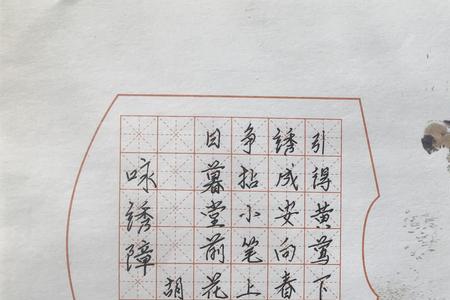 咏綉障
胡
日暮堂前花
争拈小笔上
綉成安向春
引得黄莺下